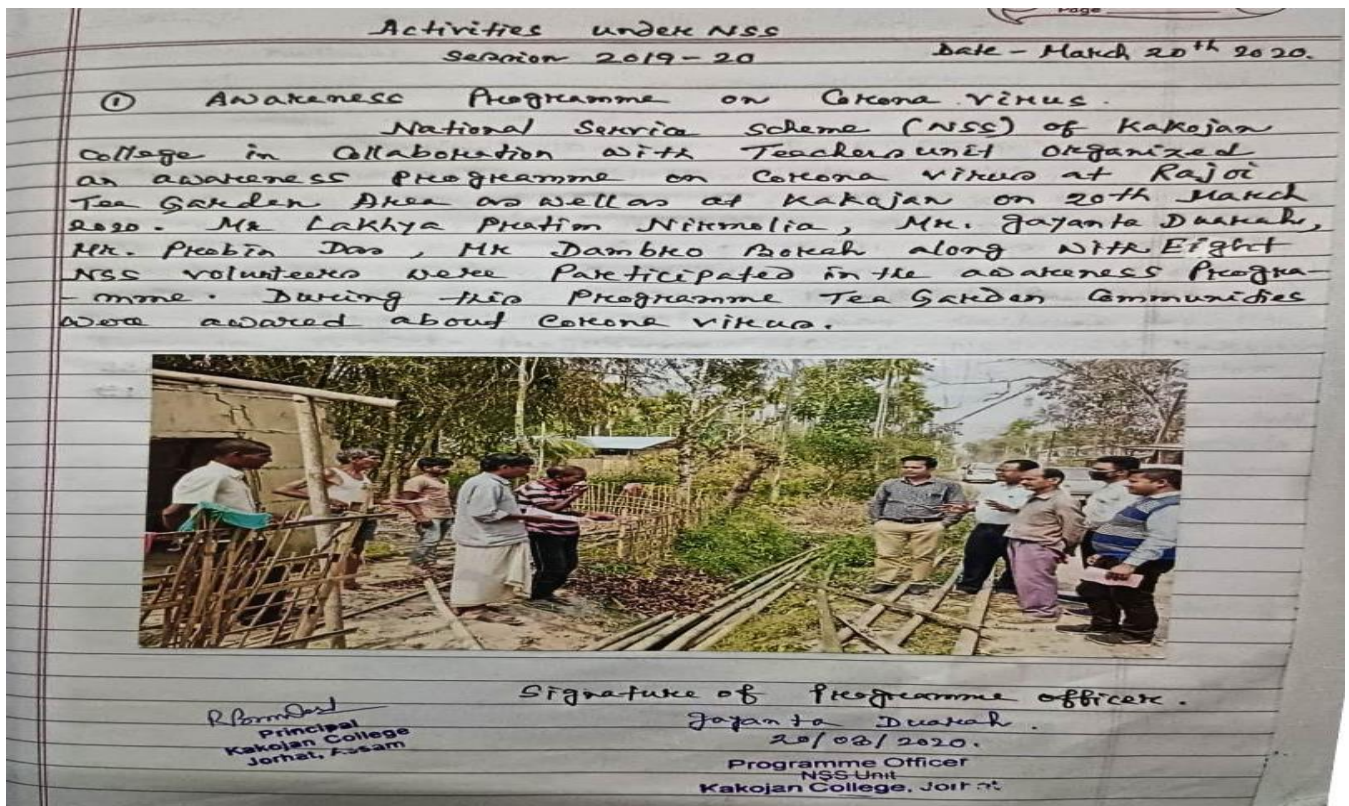 Page
Activities under NSS
Session 2019-20
Date - March 20th 2020.
① Awareness Programme on Corona virus.
National Service Scheme (NSS) of Kakojan
college in Collaboration with Teachers unit organized
an awareness programme on Corona virus at Rajoi
Tea Garden Area as well as at Kakajan on 20th March
2020. Mr Lakhya Pratim Nirmolia, Mr. Jayanta Duarah,
Mr. Probin Das, Mr Dambro Borah along with Eight
NSS volunteers were Participated in the awareness Progra-
-mme. During this Programme Tea Garden Communities
were awared about Corona virus.
Signature of Programme officer.
Jayanta Duarah.
20/03/2020.
Programme Officer
NSS Unit
Kakojan College, Jorhat
Principal
Kakojan College
Jorhat, Assam